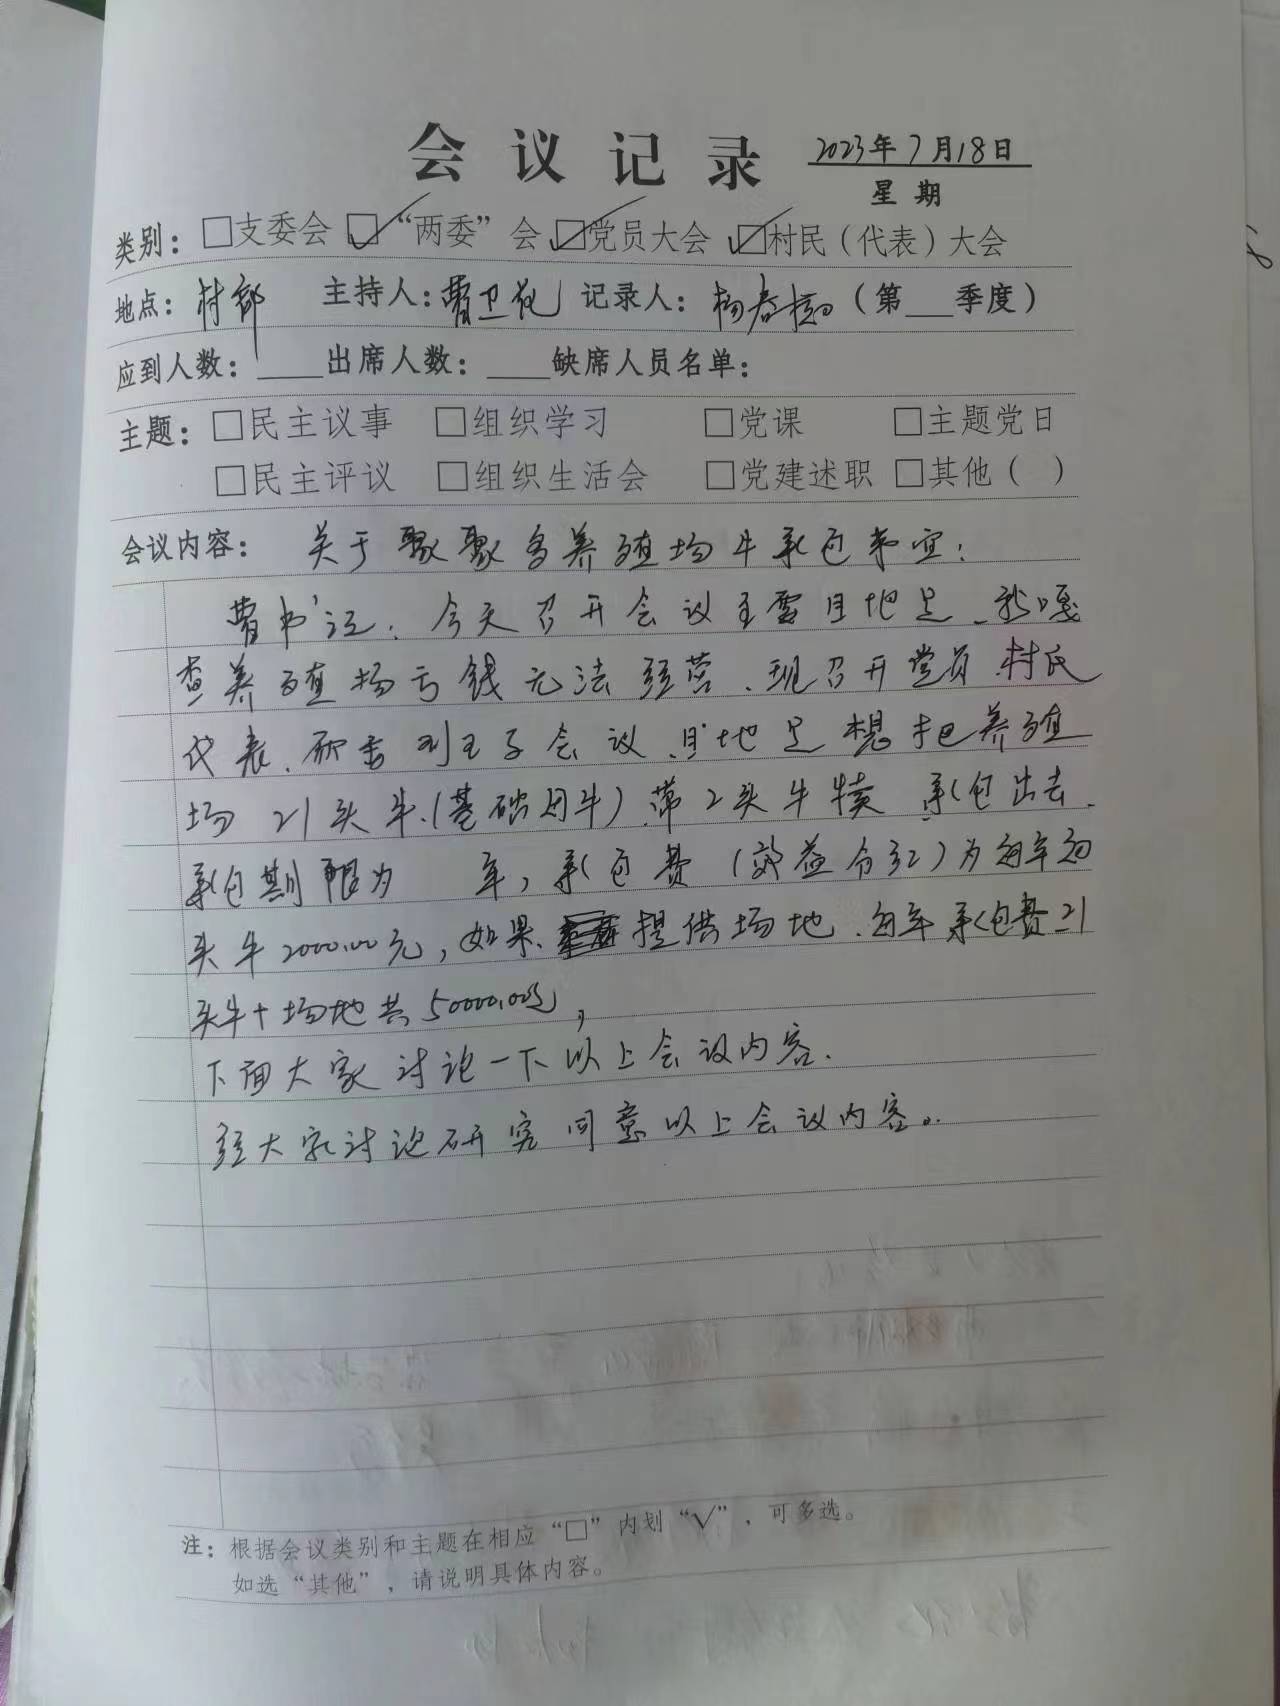 会议记录 2023年7月18日
星期
类别：□支委会 ☑“两委”会 ☑党员大会 ☑村民（代表）大会
地点：村部 主持人：曹卫花 记录人：杨春（第___季度）
应到人数：____出席人数：____缺席人员名单：
主题：□民主议事 □组织学习 □党课 □主题党日
□民主评议 □组织生活会 □党建述职 □其他（ ）
会议内容：关于聚聚多养殖场牛承包事宜：
曹书记：今天召开会议主要目地是、我嘎
查养殖场亏钱无法经营、现召开党员、村民
代表、两委班子会议、目地是想把养殖
场21头牛（基础母牛）、带2头牛犊、承包出去、
承包期限为 年，承包费（效益分红）为每年每
头牛2000.00元，如果、提供场地、每年承包费21
头牛+场地共50000.00元，
下面大家讨论一下以上会议内容．
经大家讨论研究同意以上会议内容。
注：根据会议类别和主题在相应“□”内划“√”，可多选。
如选“其他”，请说明具体内容。